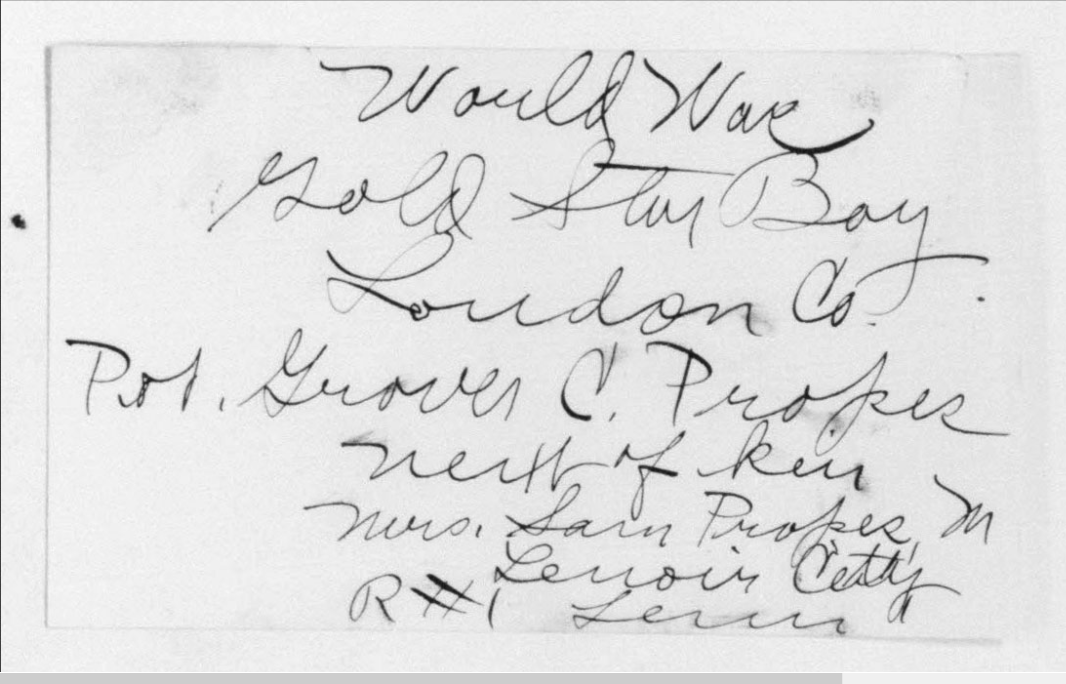 World War
Gold Star Boy
Loudon Co.
Pvt. Grover C. Propes
Next of kin
Mrs. Sam Propes, M
Lenoir City
R#1 Tenn